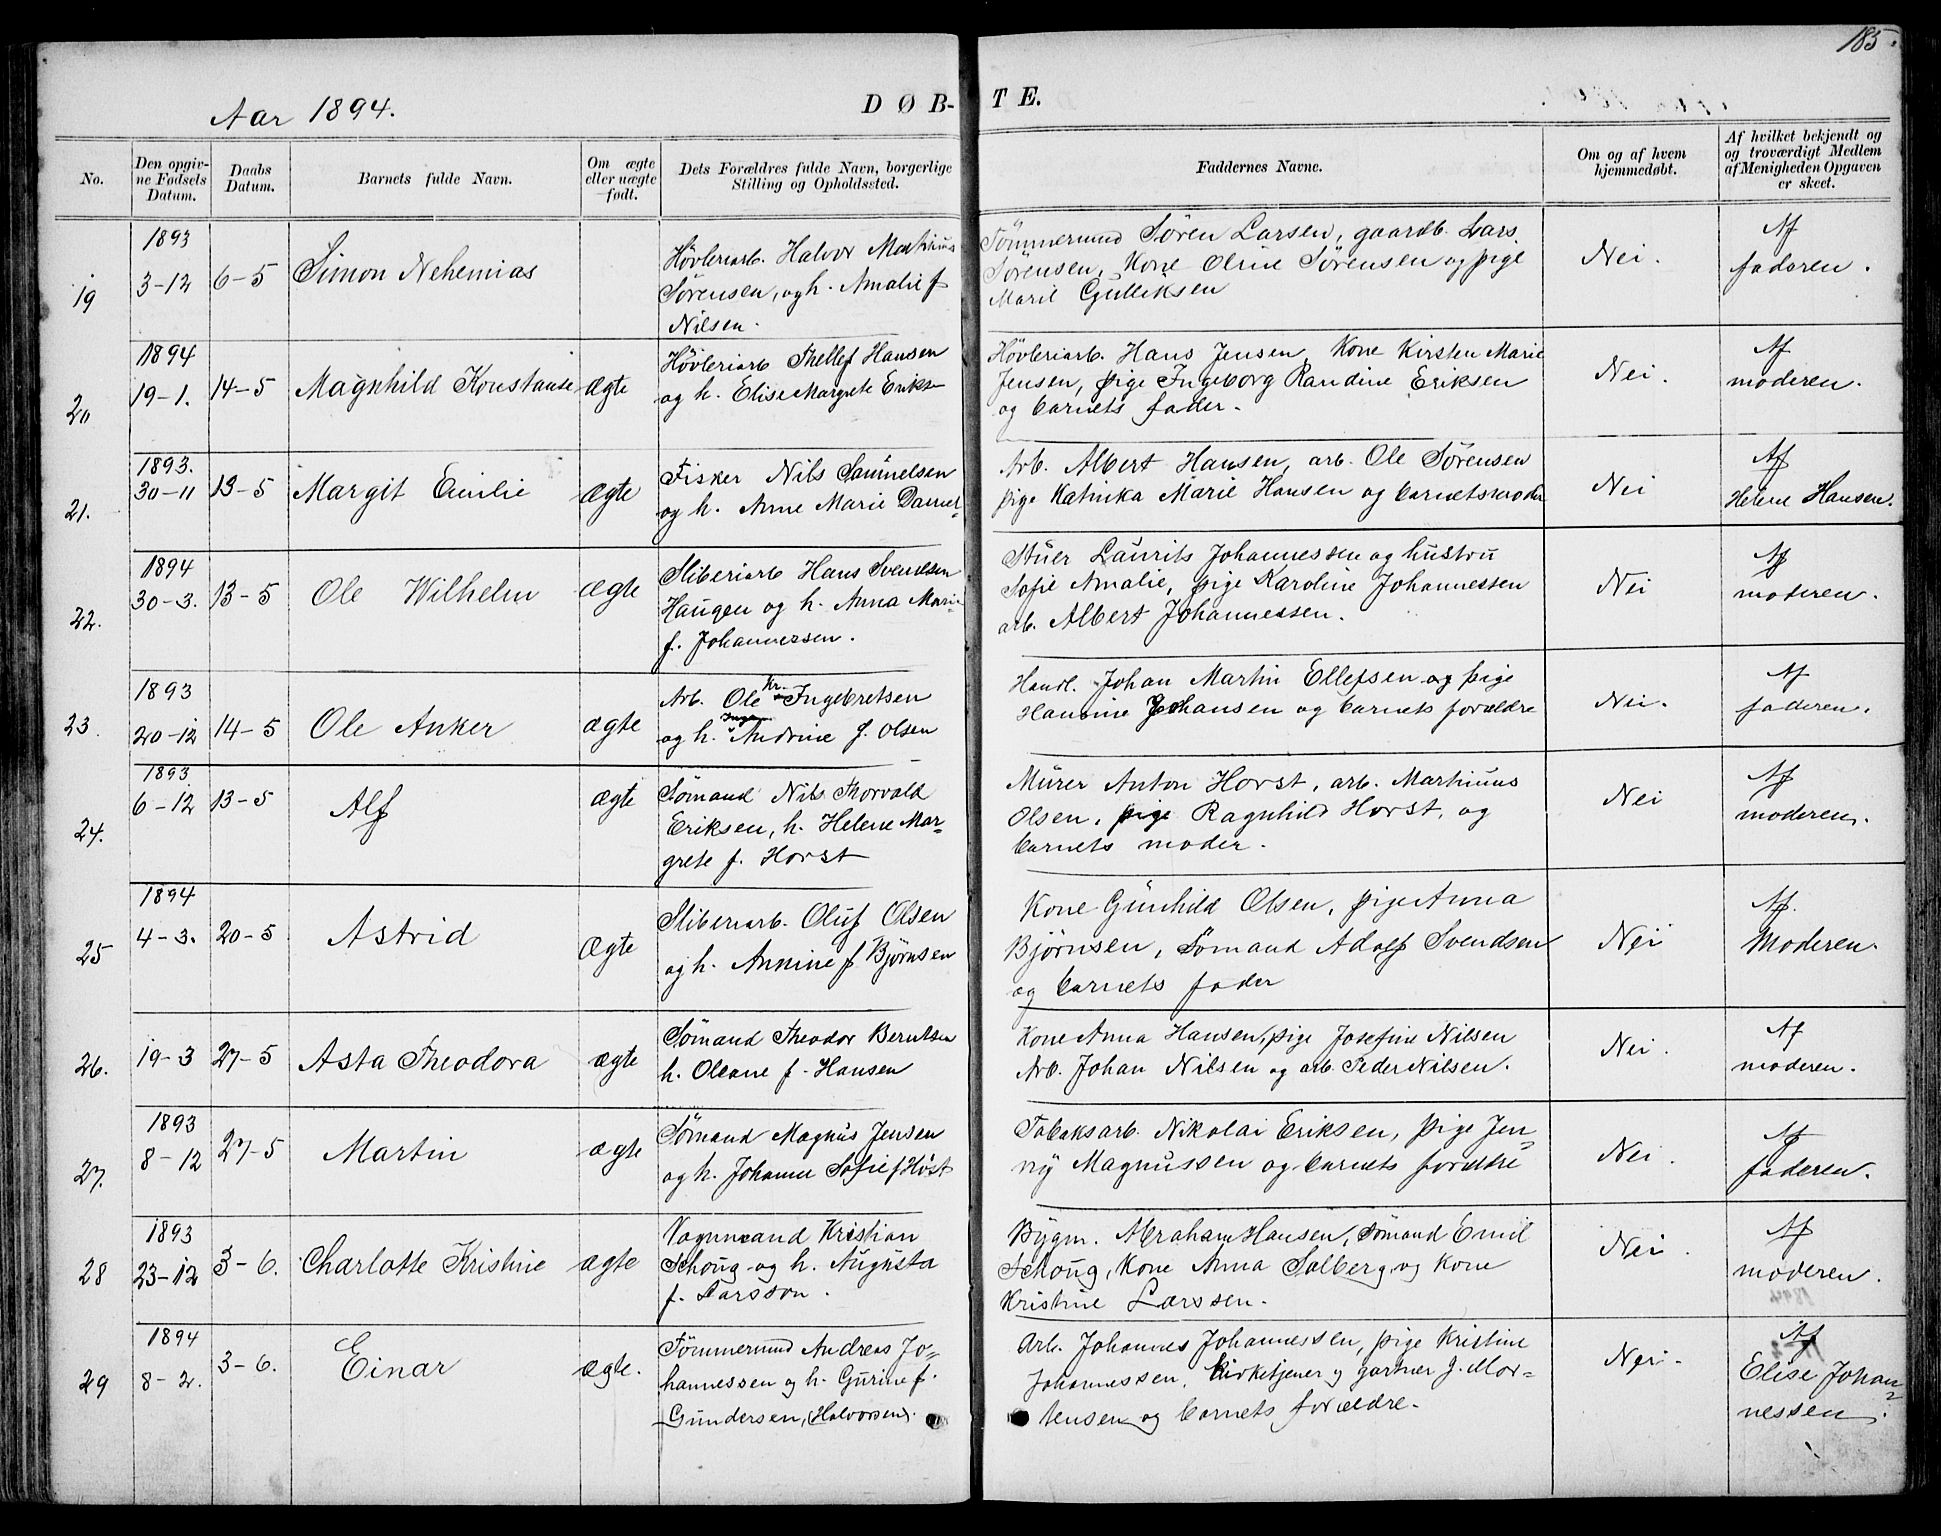 185.
Aar 1894.
DØB-TE.
No.
Den opgiv-
ne Fødsels
Datum.
Daabs
Datum.
Barnets fulde Navn.
Om ægte
eller uægte
født.
Dets Forældres fulde Navn, borgerlige
Stilling og Opholdssted.
Faddernes Navne.
Om og af hvem
hjemmedøbt.
Af hvilket bekjendt og
og troværdigt Medlem
af Menigheden Opgaven
er skeet.
19
1893
3-12
6-5
Simon Nehemias
Høvleriarb. Halvor Martinius
Sørensen, og h. Amalie f
Nilsen.
Tømmermnd Søren Larsen, gaardb. Lars
Sørensen, Kone Oline Sørensen og pige
Marie Gulliksen
Nei.
Af
faderen.
20
1894
19-1.
14-5
Magnhild Konstanse
ægte
Høvleriarb Thellef Hansen
og h. Elise Margrete Eriks
Høvleriarb. Hans Jensen, Kone Kirsten Marie
Jensen, pige Ingeborg Randine Eriksen
og barnets fader.
Nei.
Af
moderen.
21.
1893.
30-11
13-5
Margit Emilie
ægte
Fisker Nils Samuelsen
og h. Anne Marie
Arb. Albert Hansen, arb. Ole Sørensen
pige Katinka Marie Hansen og barnets moder
Nei
Af
Helene Hansen.
22.
1894
30-3.
13-5
Ole Wilhelm
ægte
Sliberiarb Hans Svendsen
Haugen og h. Anna Marie
f. Johannersen.
Stuer Laurits Johannessen og hustru
Sofie Amalie, pige Karoline Johannessen
arb. Albert Johannessen.
Nei
Af
moderen.
23.
1893
20-12
14-5
Ole Anker
ægte
Arb. Ole Kr. Ingebretsen
og h. Andrine f. Olsen
Handl. Johan Martin Ellefsen og pige
Hansine Johansen og barnets forældre
Nei.
Af
faderen.
24.
1893
6-12
13-5
Alf
ægte
Sømand Nils Thorvald
Eriksen, h. Helene Mar-
grete f. Horst
Murer Anton Horst, arb. Martinius
Olsen, pige Ragnhild Horst, og
barnets moder.
Nei
Af
moderen.
25
1894
4-3.
20-5
Astrid
ægte
Sliberiarb. Oluf Olsen
og h. Annine f Bjørnsen
Kone Gunhild Olsen, pige Anna
Bjørnsen, Sømand Adolf Svendsen
og barnets fader
Nei
Af.
Moderen.
26.
19-3
27-5
Asta Theodora
ægte
Sømand Theodor Berntsen
h. Oleane f. Hansen
Kone Anna Hansen, pige Josefine Nilsen
Arb. Johan Nilsen og arb. Peder Nilsen.
Nei.
Af
moderen.
27.
1893
8-12
27-5
Martin
ægte
Sømand Magnus Jensen
og h. Johanne Sofie f Høst
Tobaksarb. Nikolai Eriksen, pige Jen-
ny Magnussen og barnets forældre
Nei.
Af
faderen.
28
1893
23-12
3-6.
Charlotte Kristine
ægte
Vognmand Kristian
Schoug og h. Augusta
f. Larsson.
Bygm. Abraham Hansen, sømand Emil
Schoug, Kone Anna Solberg og Kone
Kristine Larssen.
Nei.
Af
moderen.
29
1894
8-2.
3-6.
Einar
ægte.
Tømmermnd Andreas Jo-
hannessen og h. Gurine f.
Gundersen, (Halvorsen).
Arb. Johannes Johannessen, pige Kristine
Johannessen, Kirketjener og gartner J. Mor-
tensen og barnets forældre.
Nei.
Af
Elise Johan-
nessen.